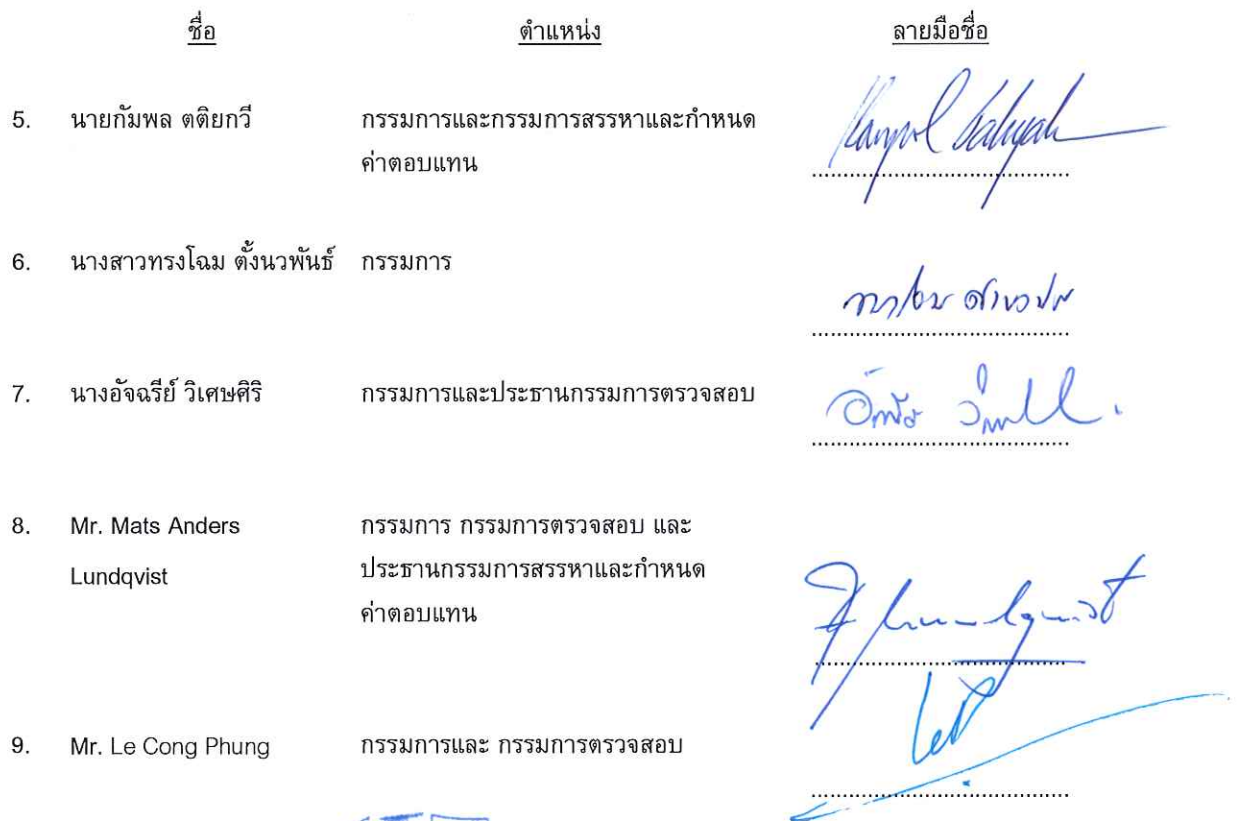 ชื่อ ตำแหน่ง ลายมือชื่อ
5. นายกัมพล ตติยกวี กรรมการและกรรมการสรรหาและกำหนด
ค่าตอบแทน
6. นางสาวทรงโฉม ตั้งนวพันธ์ กรรมการ
7. นางอัจฉรีย์ วิเศษศิริ กรรมการและประธานกรรมการตรวจสอบ
8. Mr. Mats Anders กรรมการ กรรมการตรวจสอบ และ
Lundqvist ประธานกรรมการสรรหาและกำหนด
ค่าตอบแทน
9. Mr. Le Cong Phung กรรมการและ กรรมการตรวจสอบ